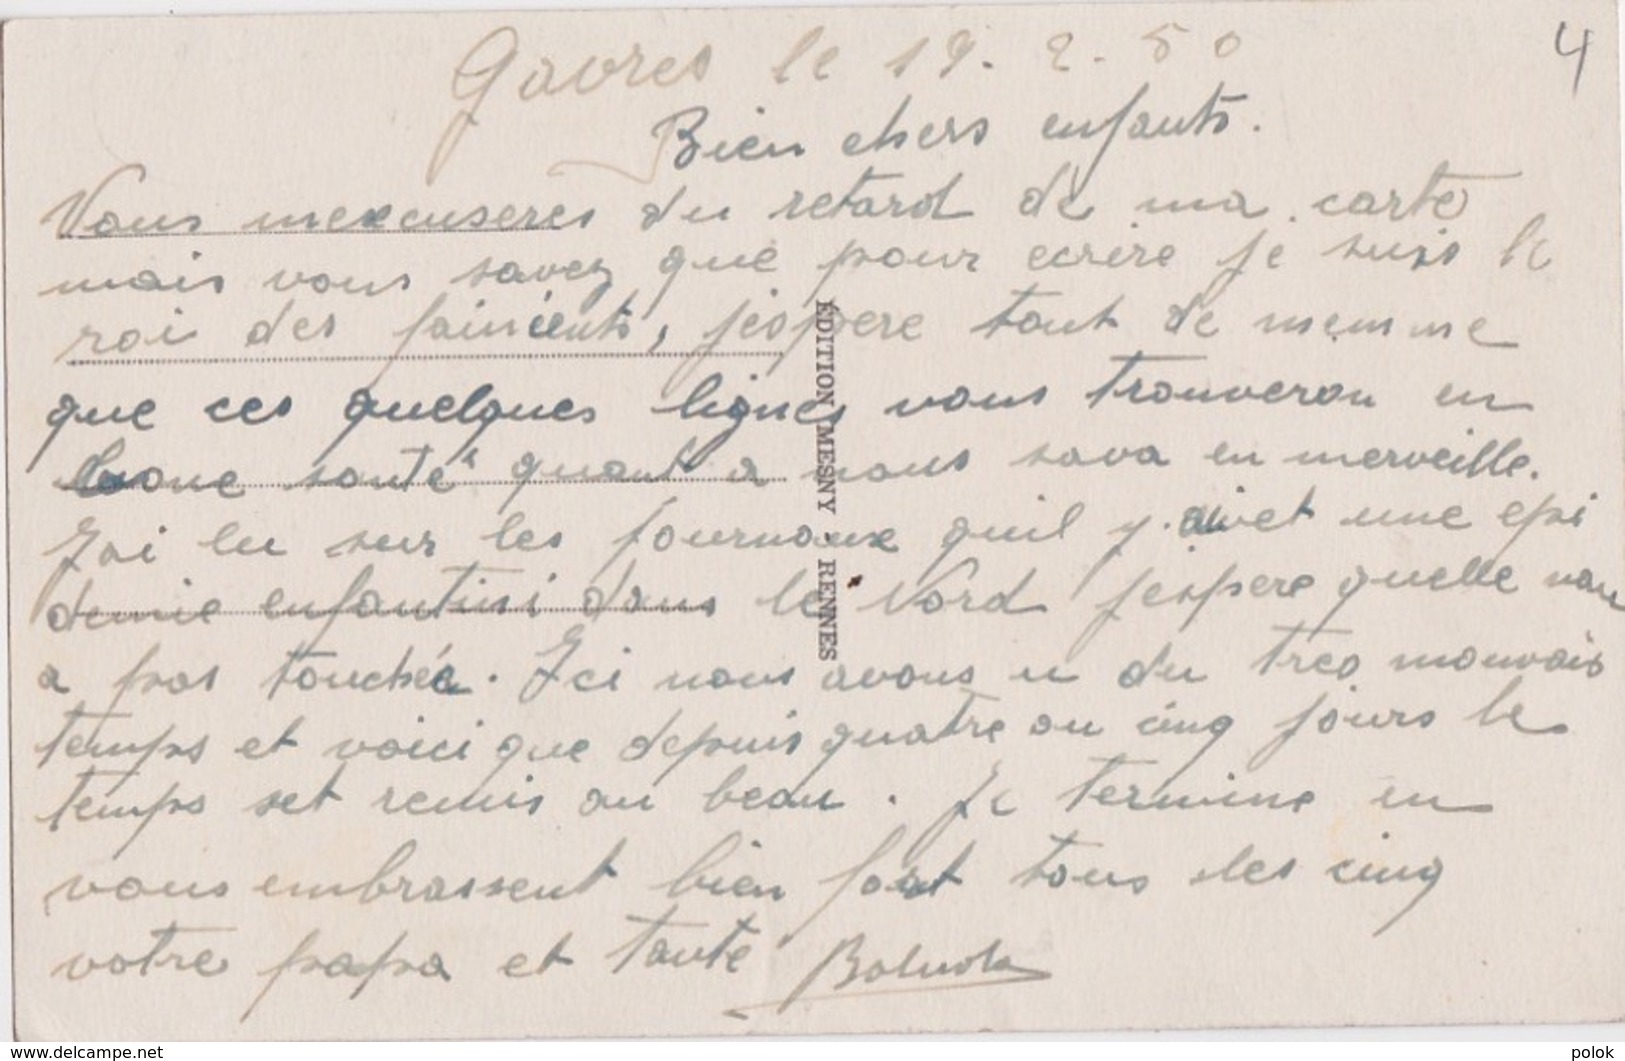 Gavres le 19. 2. 50
4
Bien chers enfants.
Vous mexcuseres du retard de ma carte
mais vous savez que pour ecrire je suis le
roi des fainients, jéspere tout de memme
que ces quelques lignes vous trouveron en
bone santé quant a nous sava en merveille.
Jai lu sur les journaux quil y. avet une epi
demie enfantini dans le Nord jespere quelle vou
a pas touchéa. Ici nous avons u du tres mauvais
temps et voici que depuis quatre ou cinq jours le
temps set remis au beau. Je termine en
vous embrassent bien fort tous les cinq
votre papa et tante
ÉDITION MESNY - RENNES
www.delcampe.net
polok